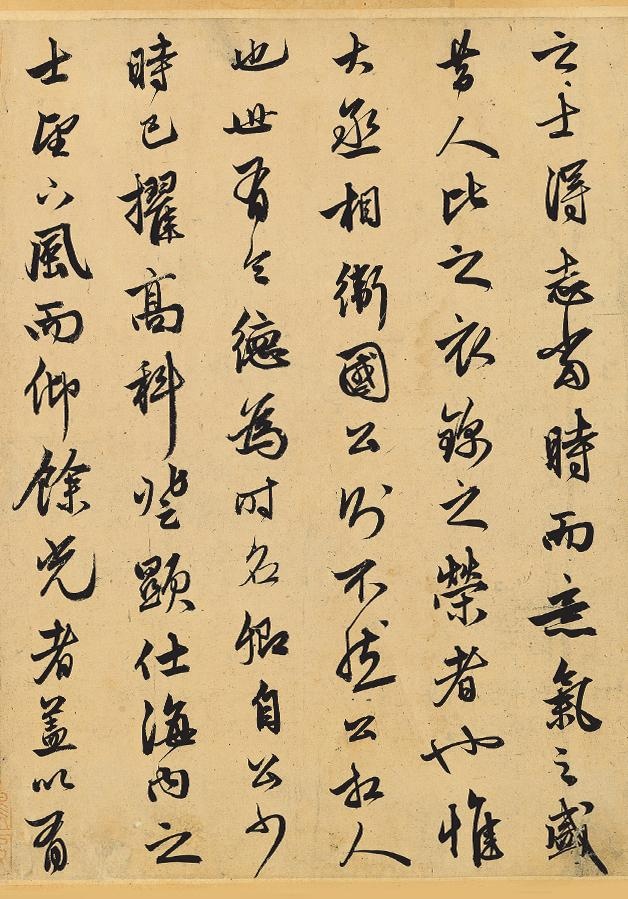 之士得志當時而意氣之盛
昔人比之衣錦之榮者也惟
大丞相衛國公則不然公相人
也世有令德為時名卿自公少
時已擢高科登顯仕海內之
士望下風而仰餘光者蓋以有